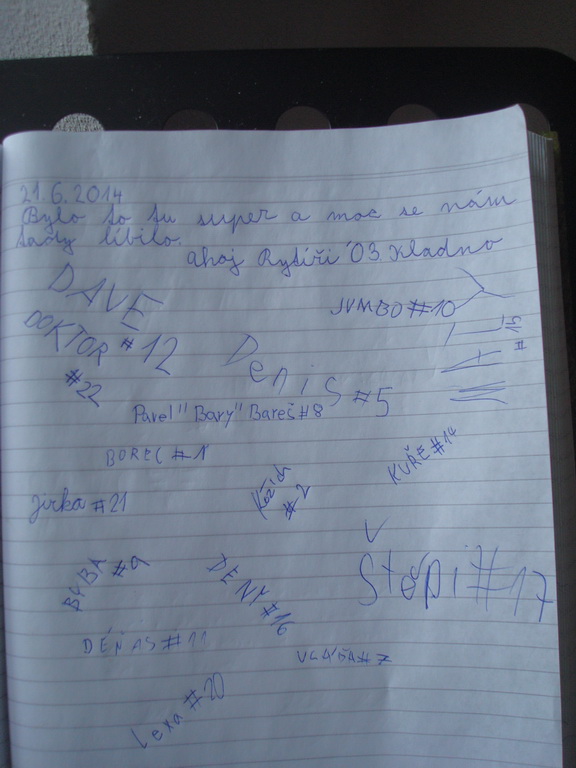 21.6.2014
Bylo to tu super a moc se nám
tady líbilo.
ahoj Rytíři '03 Kladno
DAVE
#12
JUMBO #10
DOKTOR
#22
#15
Denis #5
Pavel "Bary" Bareš #8
BOREC #1
KUŘE #14
Jirka #21
#2
BYBA #9
DENY #16
Stópi #17
DÉŇAS #11
VLÁĎA #7
Lexa #20